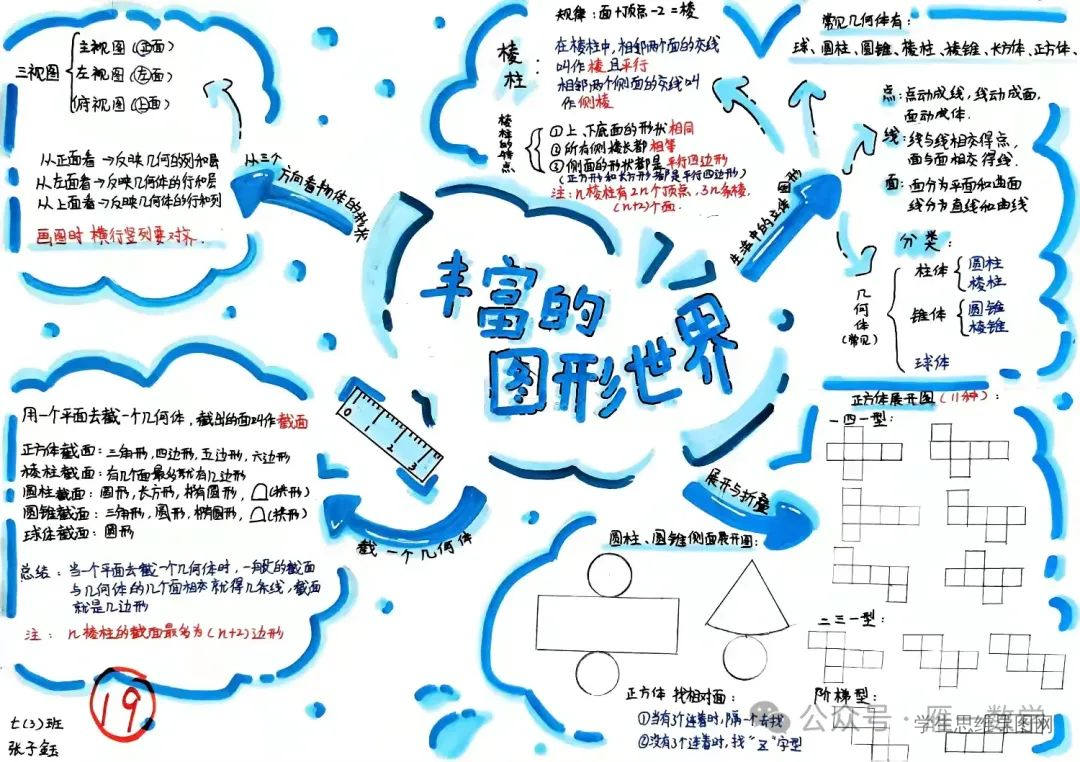 丰富的
图形世界
从三个
方向看物体的形状
三视图
主视图(正面)
左视图(左面)
俯视图(上面)
从正面看→反映几何的列和层
从左面看→反映几何体的行和层
从上面看→反映几何体的行和列
画图时横行竖列要对齐.
规律:面+顶点-2=棱
棱柱:
在棱柱中,相邻两个面的交线
叫作棱且平行
相邻两个侧面的交线叫
作侧棱
棱柱的特点
①上、下底面的形状相同
②所有侧棱长都相等
③侧面的形状都是平行四边形
(正方形和长方形都是平行四边形)
注:n棱柱有2n个顶点,3n条棱,
(n+2)个面.
生活中的立体图形
常见几何体有:
球、圆柱、圆锥、棱柱、棱锥、长方体、正方体、
点:点动成线,线动成面,
面动成体.
线:线与线相交得点,
面与面相交得线.
面:面分为平面和曲面
线分为直线和曲线
分类:
几何体(常见)
柱体
圆柱
棱柱
锥体
圆锥
棱锥
球体
0 1 2 3
截一个几何体
用一个平面去截一个几何体,截出的面叫作截面
正方体截面:三角形,四边形,五边形,六边形
棱柱截面:有几个面最多就有几边形
圆柱截面:圆形,长方形,椭圆形,(拱形)
圆锥截面:三角形,圆形,椭圆形,(拱形)
球体截面:圆形
总结:当一个平面去截一个几何体时,一般的截面
与几何体的几个面相交就得几条线,截面
就是几边形
注:n棱柱的截面最多为(n+2)边形
展开与折叠
圆柱、圆锥侧面展开图:
正方体找相对面:
①当有3个连着时,隔一个去找
②没有3个连着时,找"Z"字型
正方体展开图(11种):
一四一型:
二三一型:
阶梯型:
19
七(3)班
张子鈺
公众号·雁一数学
学生思维课图网